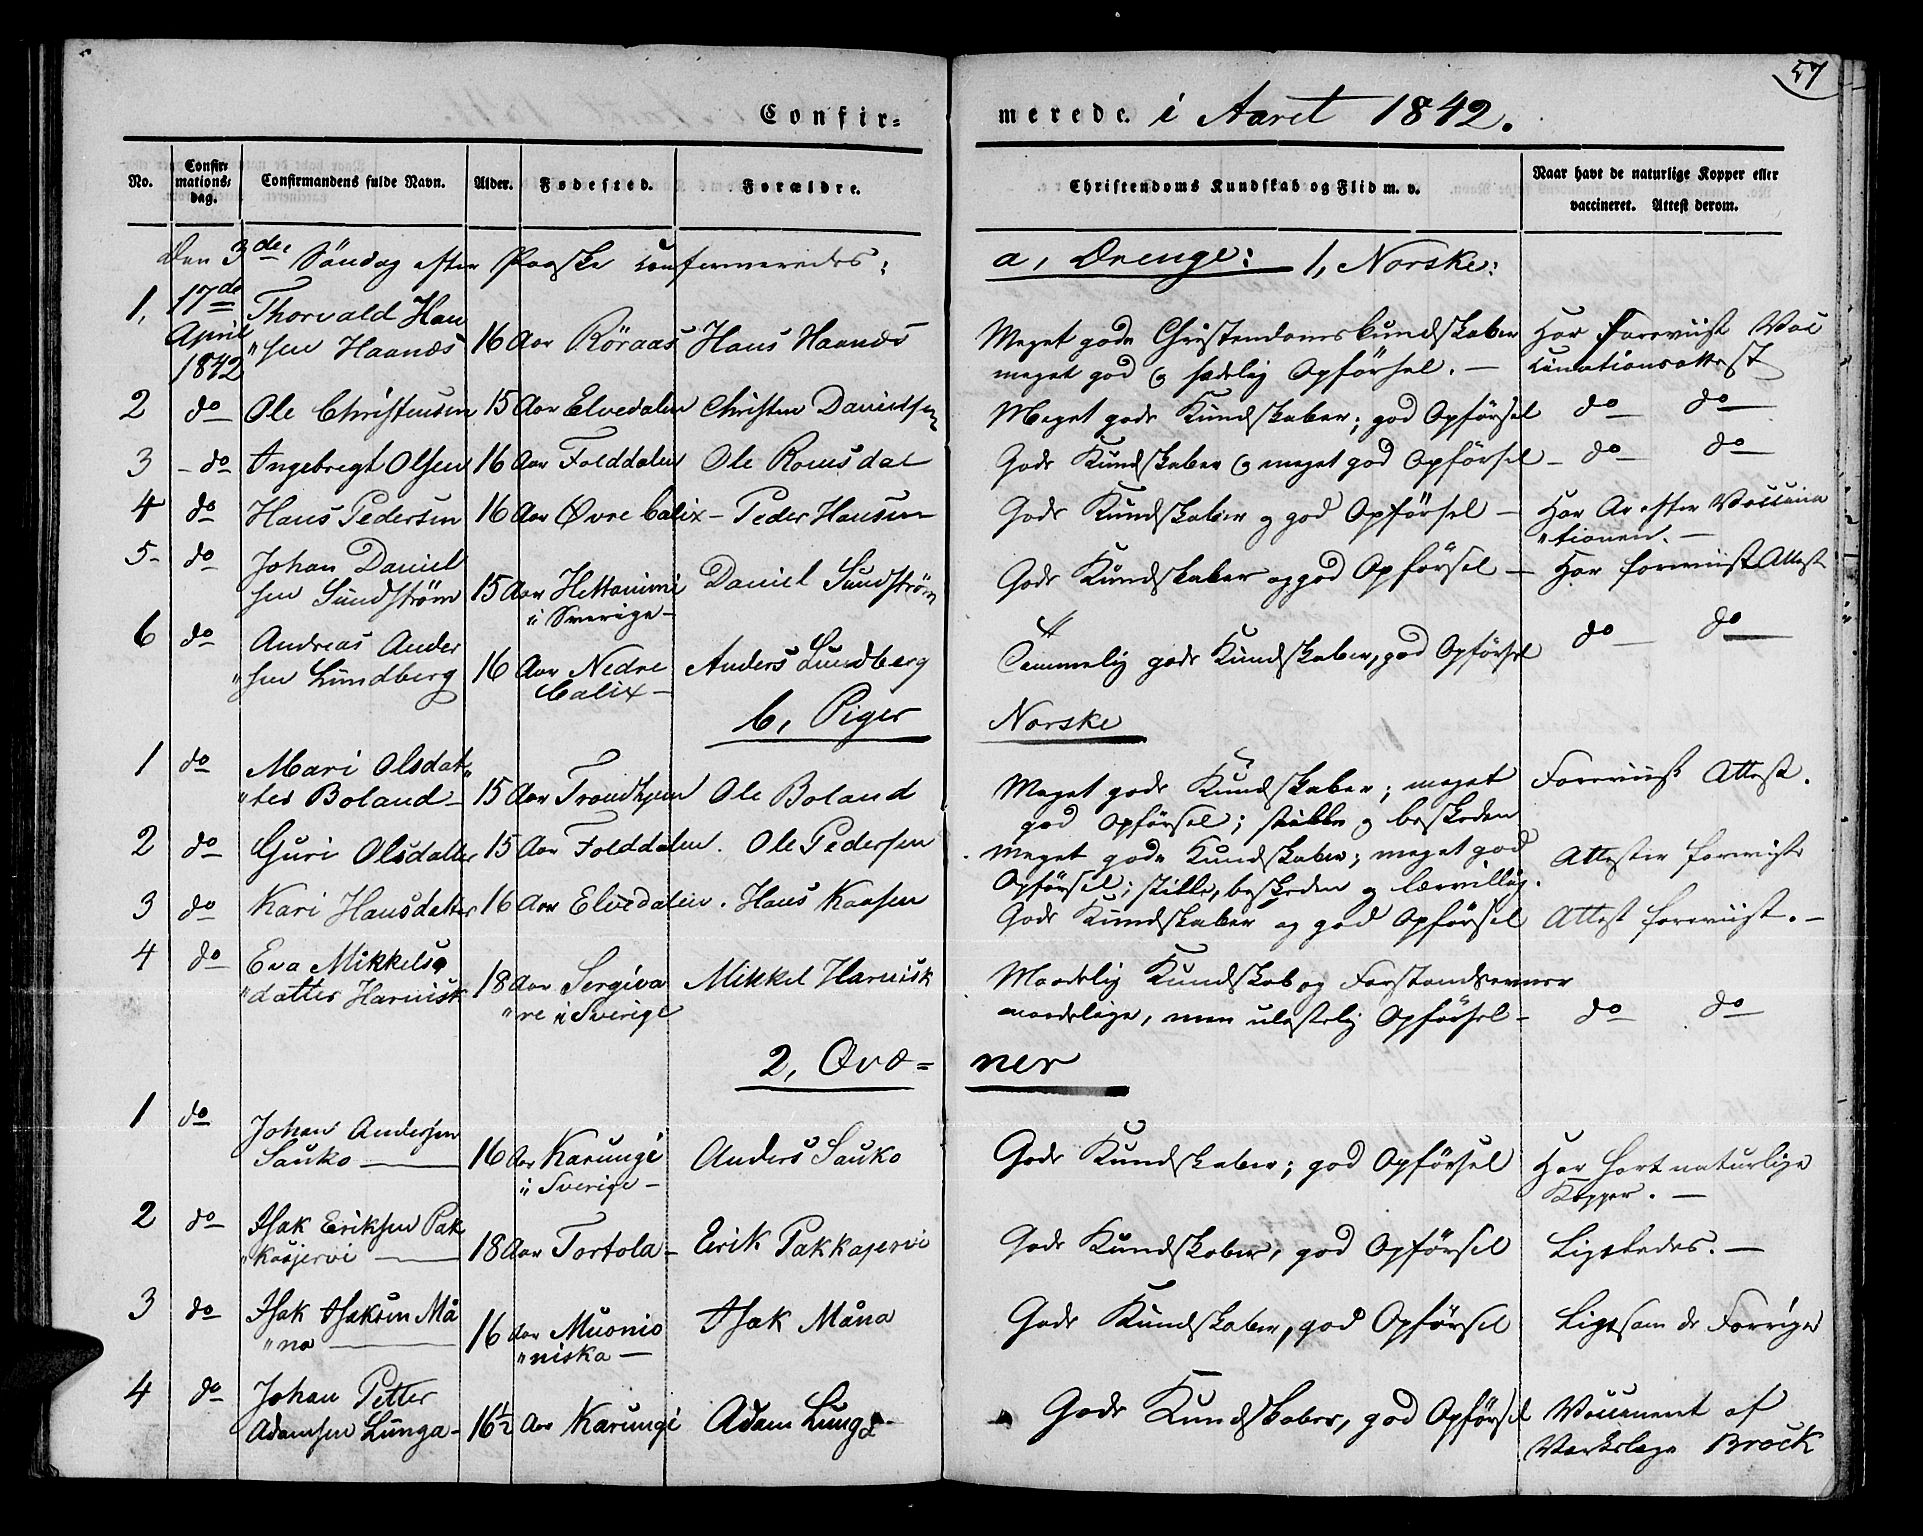 57
Confir- merede. i Aaret 1842.
No. Confirmations-dag. Confirmandens fulde Navn. Alder. Fødested. Forældre. Christendoms Kundskab og Flid m. v. Naar havt de naturlige Kopper eller vaccineret. Attest derom.
Den 3die Søndag efter Paaske confirmeredes: a, Drenge: 1, Norske:
1, 17de April 1842 Thorvald Han„sen Haanæs 16 Aar Röraas Hans Haanæs Meget gode Christendomskundskaber meget god og sædelig Opførsel. — Har Foreviist Vaccinationsattest
2 do Ole Christensen 15 Aar Elvedalen Christen Danielsen Meget gode Kundskaber; god Opførsel do do
3 - do Ingebregt Olsen 16 Aar Folddalen Ole Romsdal Gode Kundskaber og meget god Opførsel - do do
4 do Hans Pedersen 16 Aar Øvre Calix - Peder Hansen Gode Kundskaber og god Opførsel - Har Ar efter Vaccina„tionen. —
5- do Johan Daniel sen Sundstrøm 15 Aar Hettanimi i Sverige - Daniel Sundstrøm Gode Kundskaber og god Opførsel - Har foreviist Attest
6 do Andreas Ander„sen Lundberg 16 Aar Nedre Calix - Anders Lundberg Temmelig gode Kundskaber, god Opførsel do do
b, Piger Norske
1 do Mari Olsdat„ter Boland - 15 Aar Trondhjem Ole Boland Meget gode Kundskaber; meget god Opførsel; stille og beskeden Foreviist Attest.
2 do Guri Olsdatter 15 Aar Folddalen. Ole Pedersen meget gode Kundskaber; meget god Opførsel; stille, beskeden og lærvillig. Attester foreviist
3 do Kari Hansdatter 16 Aar Elvedalen. Hans Kaasen Gode Kundskaber og god Opførsel Attest foreviist. —
4 do Eva Mikkels„datter Harnisk 18 Aar Sergiva„re i Sverige Mikkel Harnisk Maadelig Kundskab og Forstandsevner maadelige, men ulastelig Opførsel - do do
2, Qvæ= ner
1 do Johan Andersen Sauko — 16 Aar Karungi i Sverige - Anders Sauko Gode Kundskaber; god Opførsel Har havt naturlige Kopper. —
2 do Isak Eriksen Pak„kasjervi — 18 Aar Tortola - Erik Pakkajervi Gode Kundskaber, god Opførsel Ligeledes. —
3 do Isak Isaksen Må„na — 16 Aar Muonio„niska — Isak Måna Gode Kundskaber, god Opførsel Ligesom de Forrige
4 do Johan Petter Adamsen Lunga - 16½ Aar Karungi Adam Lunga - Gode Kundskaber, god Opførsel Vaccineret af Værkslæge Brock